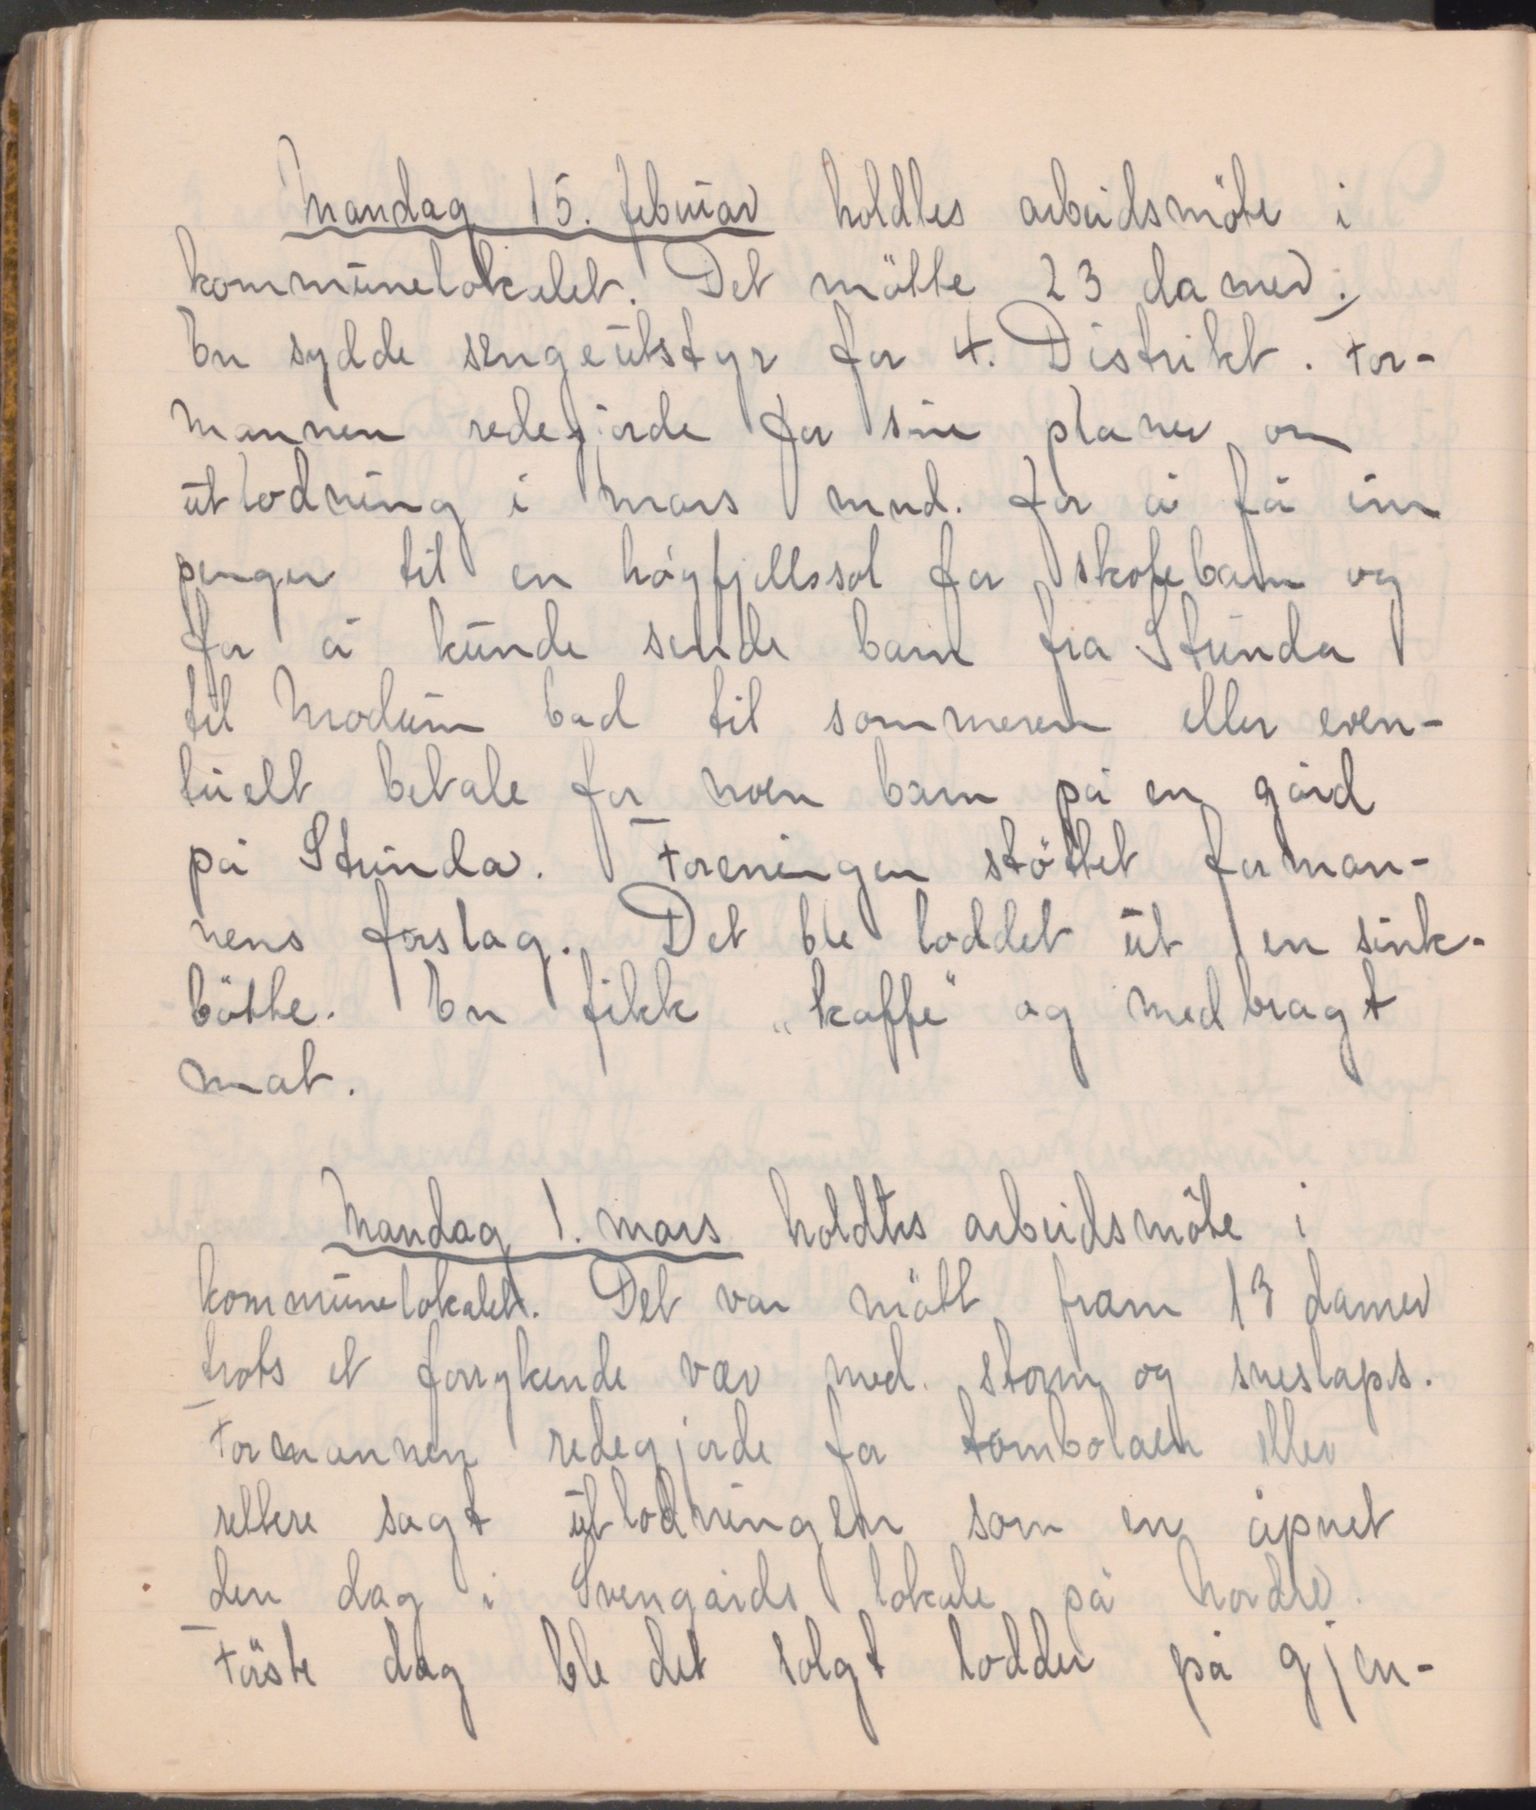 Mandag 15. februar holdtes arbeidsmöte i
kommunelokalet. Det mötte 23 damer.
En sydde sengeutstyr for 4. Distrikt. For-
mannen redegjorde for sine planer om
utlodning i mars mnd. for å få inn
penger til en högfjellssol for skolebarn og
for å kunde sende barn fra Stunda
til Modum bad til sommeren eller even-
tuelt betale for noen barn på en gård
på Stunda. Foreningen stöttet forman-
nens forslag. Det ble loddet ut en sink-
bötte. En fikk „kaffe" og medbragt
mat.
Mandag 1. mars holdtes arbeidsmöte i
kommunelokalet. Det var mött fram 13 damer
trots et forrykende vær med storm og sneslaps.
Formannen redegjorde for tombolaen eller
rettere sagt utlodningen som en åpnet
den dag i Svengårds lokale på Nordre.
Förste dag ble det solgt lodder på gjen-